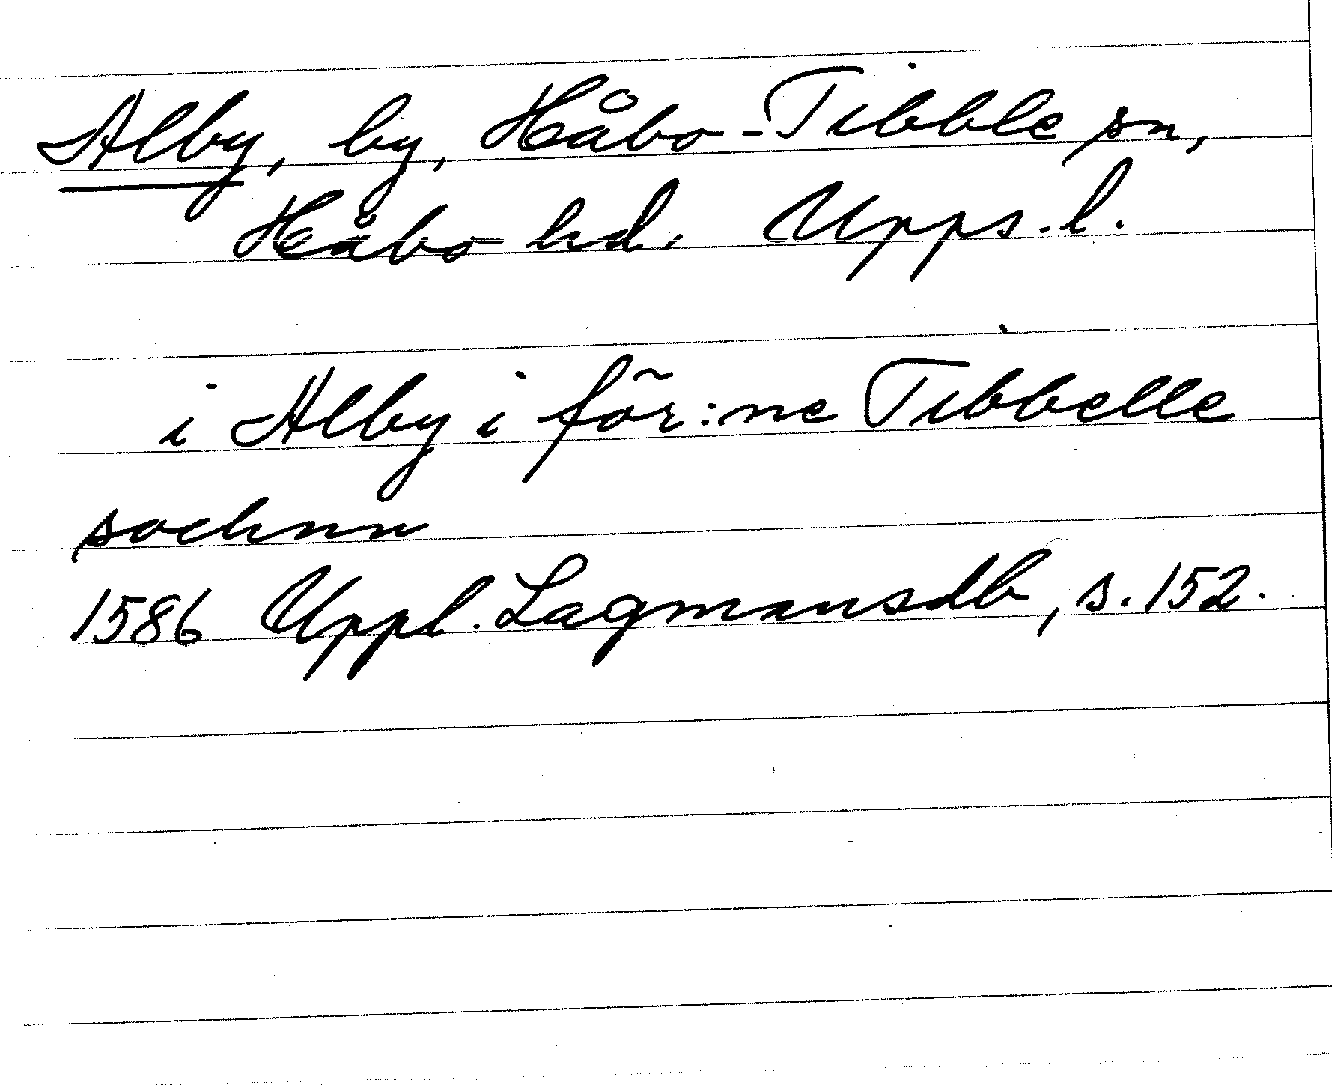 Alby, by, Håbo-Tibble sn,
Håbo hd. Upps. l.
i Alby i för:ne Tibbelle
sochnn
1586 Uppl. Lagmansdb, s. 152.